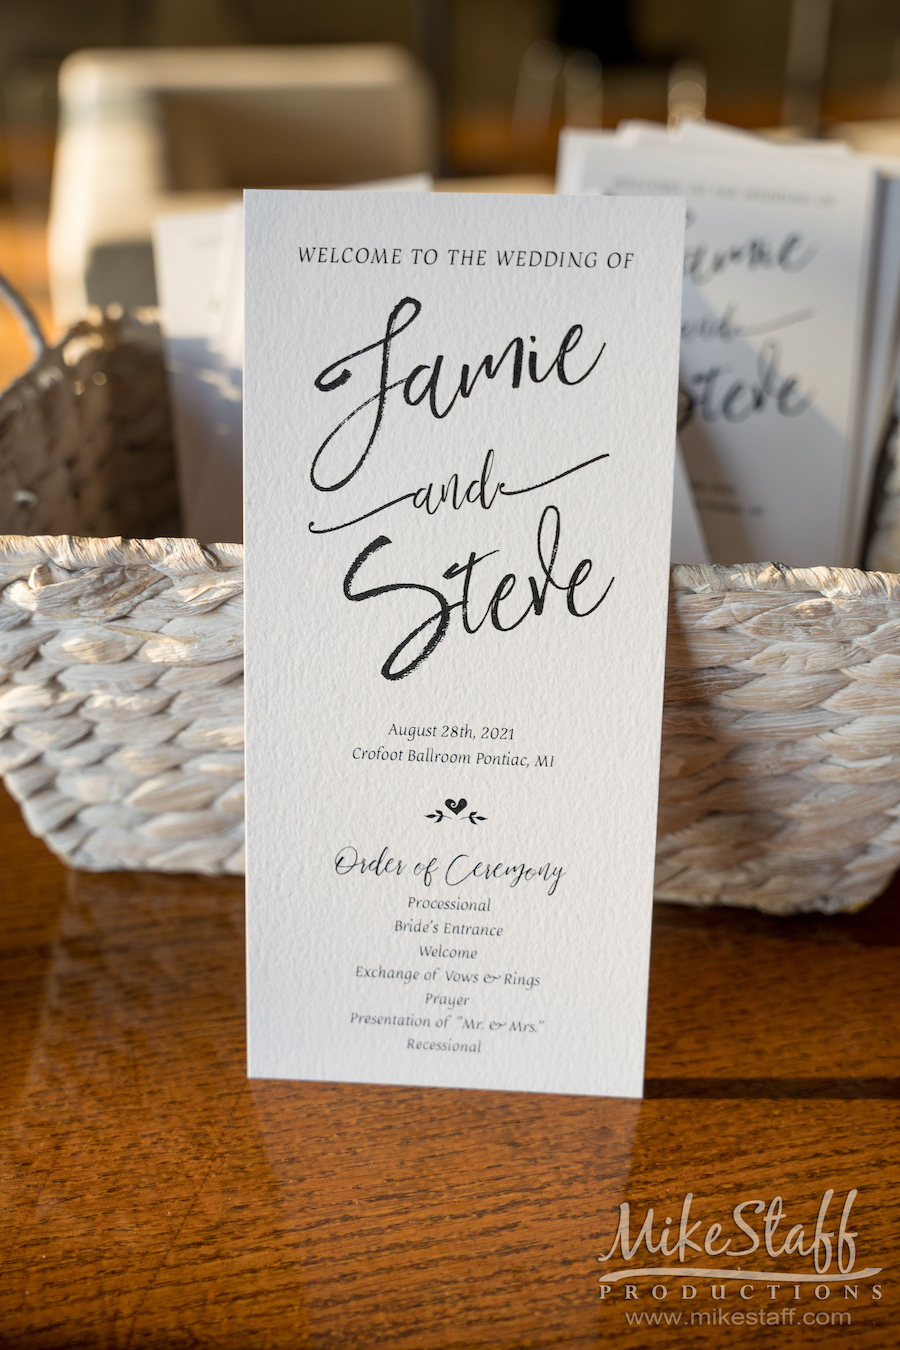 WELCOME TO THE WEDDING OF
Jamie
and
Steve
August 28th, 2021
Crofoot Ballroom Pontiac, MI
Order of Ceremony
Processional
Bride's Entrance
Welcome
Exchange of Vows & Rings
Prayer
Presentation of "Mr. & Mrs."
Recessional
WELCOME TO THE WEDDING OF
Jamie
and
Steve
MikeStaff
PRODUCTIONS
www.mikestaff.com